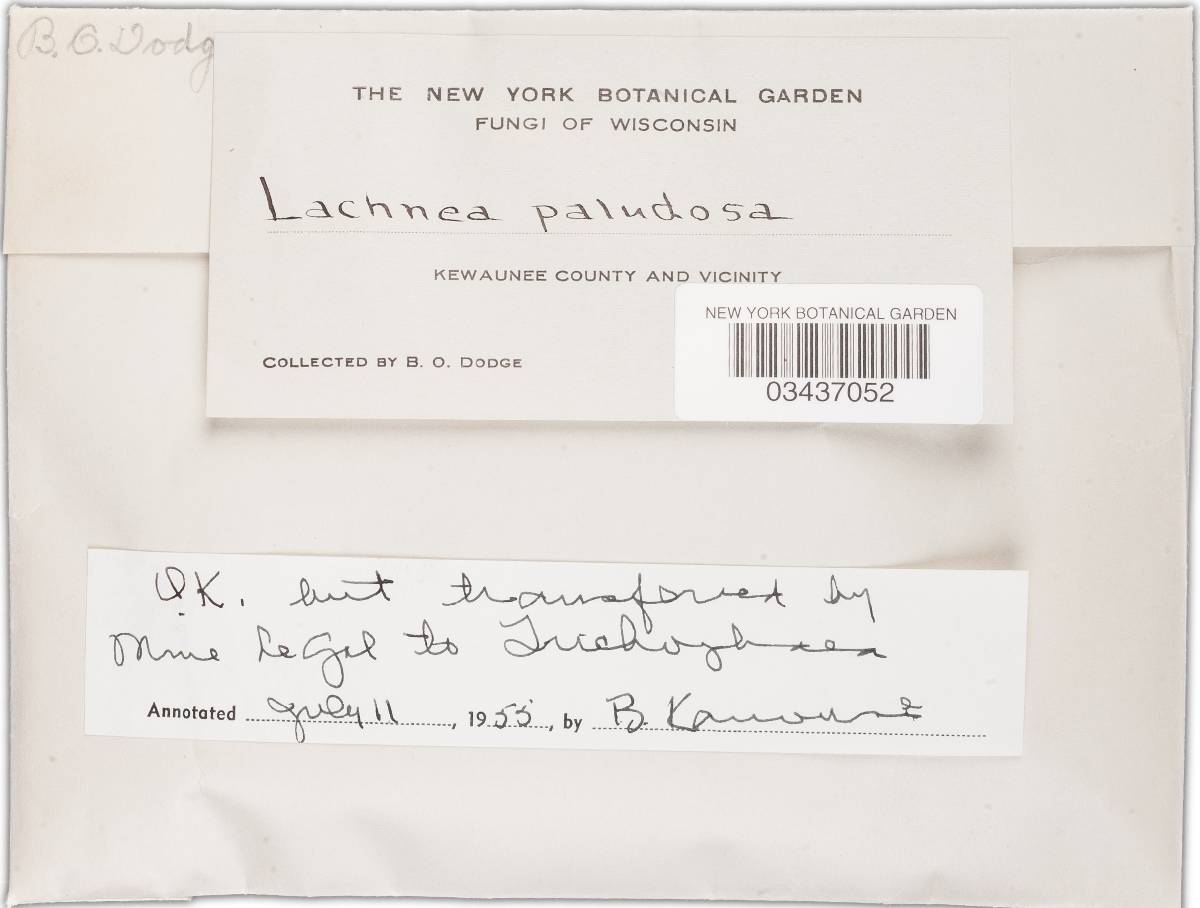 B. O. Dodg
THE NEW YORK BOTANICAL GARDEN
FUNGI OF WISCONSIN
Lachnea paludosa
KEWAUNEE COUNTY AND VICINITY
NEW YORK BOTANICAL GARDEN
03437052
COLLECTED BY B. O. DODGE
O.K. but transfered by
Mme Le Gal to Trichophaea
Annotated July 11, 1955, by B. Kanouse